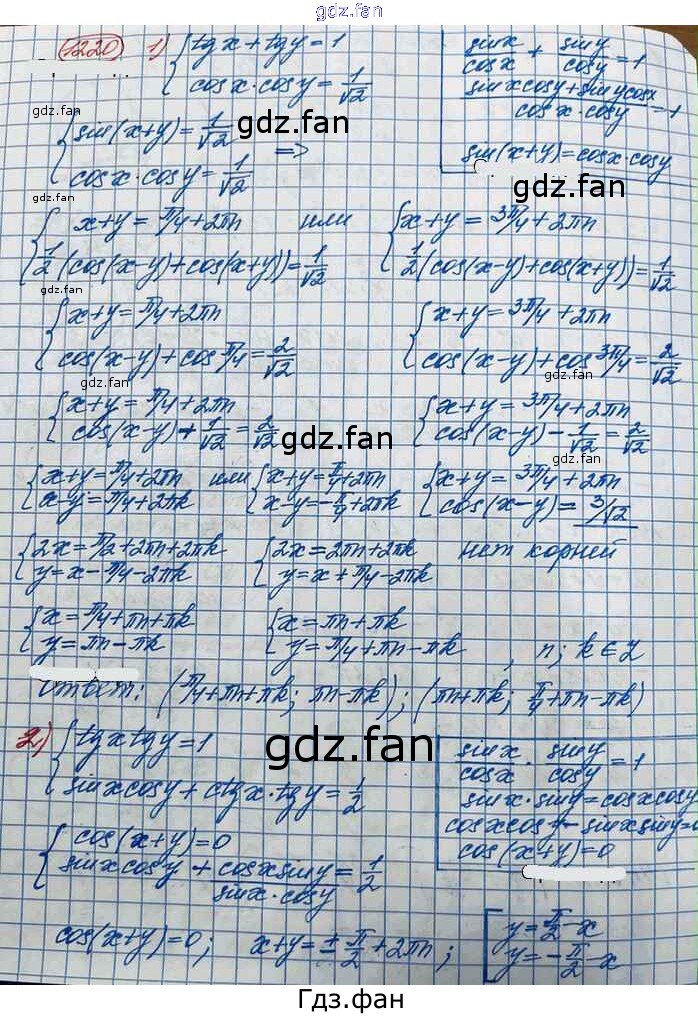 gdz.fan
1220 1) { tg x + tg y = 1
cos x · cos y = 1/√2
sin x/cos x + sin y/cos y = 1
(sin x cos y + sin y cos x)/(cos x · cos y) = 1
sin(x+y) = cos x · cos y
gdz.fan
gdz.fan
{ sin(x+y) = 1/√2 =>
cos x · cos y = 1/√2
gdz.fan
{ x+y = π/4 + 2πn или { x+y = 3π/4 + 2πn
1/2 (cos(x-y) + cos(x+y)) = 1/√2 1/2 (cos(x-y) + cos(x+y)) = 1/√2
gdz.fan
gdz.fan
{ x+y = π/4 + 2πn { x+y = 3π/4 + 2πn
cos(x-y) + cos π/4 = 2/√2 cos(x-y) + cos 3π/4 = 2/√2
gdz.fan
gdz.fan
{ x+y = π/4 + 2πn { x+y = 3π/4 + 2πn
cos(x-y) + 1/√2 = 2/√2 cos(x-y) - 1/√2 = 2/√2
gdz.fan
gdz.fan
{ x+y = π/4 + 2πn или { x+y = π/4 + 2πn { x+y = 3π/4 + 2πn
x-y = π/4 + 2πk x-y = -π/4 + 2πk cos(x-y) = 3/√2
{ 2x = π/2 + 2πn + 2πk { 2x = 2πn + 2πk нет корней
y = x - π/4 - 2πk y = x + π/4 - 2πk
{ x = π/4 + πn + πk { x = πn + πk
y = πn - πk y = π/4 + πn - πk , n; k ∈ Z
Ответ: (π/4 + πn + πk; πn - πk); (πn + πk; π/4 + πn - πk)
2) { tg x tg y = 1
sin x cos y + ctg x · tg y = 1/2
gdz.fan
sin x/cos x · sin y/cos y = 1
sin x · sin y = cos x cos y
cos x cos y - sin x sin y = 0
cos(x+y) = 0
{ cos(x+y) = 0
sin x cos y + (cos x sin y)/(sin x · cos y) = 1/2
cos(x+y) = 0; x+y = ± π/2 + 2πn; [ y = π/2 - x
y = -π/2 - x
Гдз.фан